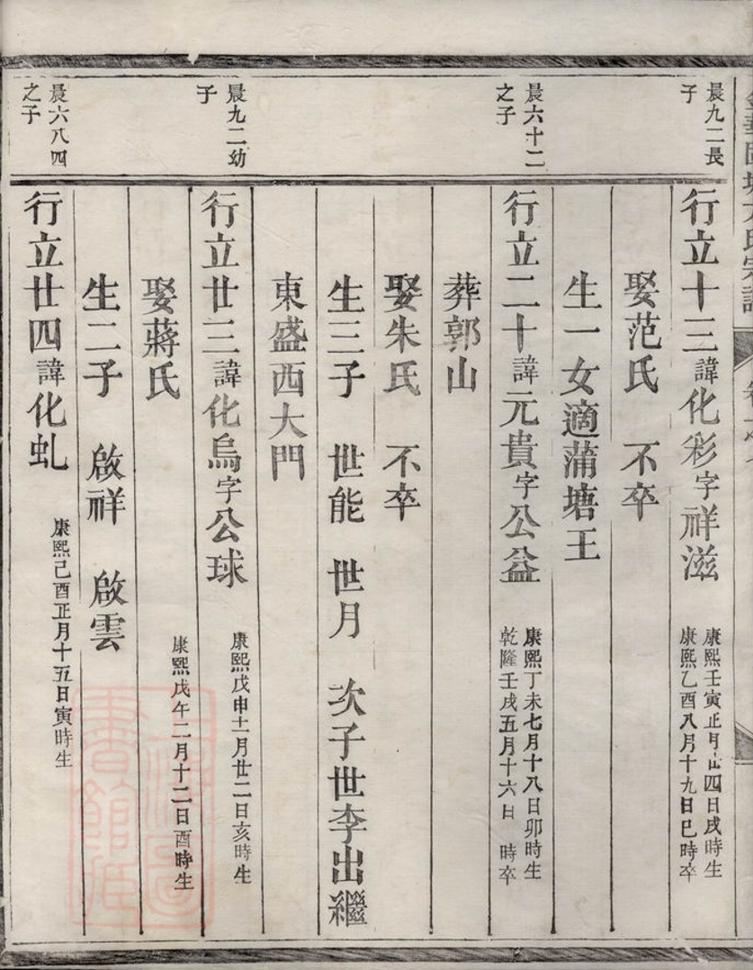 晨九二長子
行立十三諱化彩字祥滋
康熙壬寅正月廿四日戌時生
康熙乙酉八月十九日巳時卒
娶范氏 不卒
生一女適蒲塘王
晨六十二之子
行立二十諱元貴字公益
康熙丁未七月十八日卯時生
乾隆壬戌五月十六日 時卒
葬郭山
娶朱氏 不卒
生三子 世能 世月 次子世李出繼
東盛西大門
晨九二幼子
行立廿三諱化烏字公球
康熙戊申十一月廿二日亥時生
娶蔣氏
康熙戊午二月十二日酉時生
生二子 啟祥 啟雲
晨六八四之子
行立廿四諱化虬
康熙己酉正月十五日寅時生